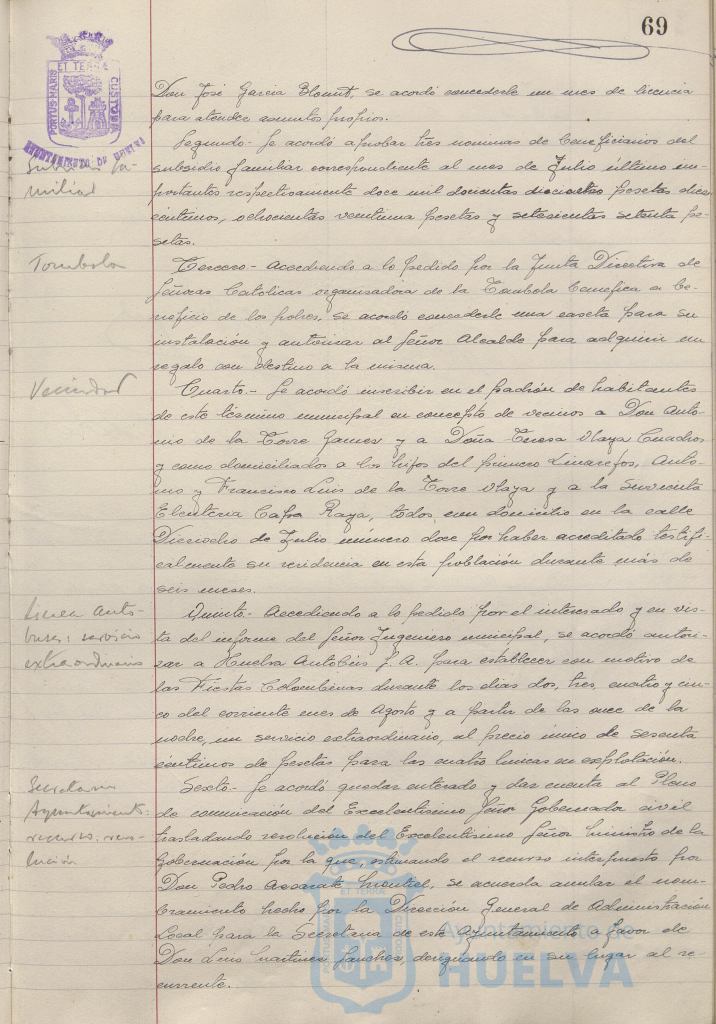 69
PORTUS MARIS
ET TERRÆ
CUSTODIA
AYUNTAMIENTO DE HUELVA
Don José Garcia Blomut, se acordó concederle un mes de licencia
para atender asuntos propios.
Subsidio fa-
miliar
Segundo.- Se acordó aprobar tres nominas de beneficiarios del
subsidio familiar correspondiente al mes de Julio último im-
portantes respectivamente doce mil doscientas diecisiete pesetas diez
centimos, ochocientas veintiuna pesetas y setecientas setenta pe-
setas.
Tombola
Tercero.- Accediendo a lo pedido por la Junta Directiva de
Señoras Catolicas organizadora de la Tombola Benefica a be-
neficio de los pobres, se acordó concederle una caseta para su
instalación y autorizar al Señor Alcalde para adquirir un
regalo con destino a la misma.
Vecindad
Cuarto.- Se acordó inscribir en el padrón de habitantes
de este término municipal en concepto de vecinos a Don Anto-
nio de la Torre Gamez y a Doña Teresa Maya Cuadros
y como domiciliados a los hijos del primero Antonio
y Francisco Luis de la Torre Maya y a la sirvienta
Eleuteria Raya, todos con domicilio en la calle
Dieciocho de Julio número doce por haber acreditado testifi-
calmente su residencia en esta población durante más de
seis meses.
Linea Auto-
buses: servicio
extraordinario
Quinto.- Accediendo a lo pedido por el interesado y en vis-
ta del informe del Señor Ingeniero municipal, se acordó autori-
zar a Huelva Autobús S.A. para establecer con motivo de
las Fiestas Colombinas durante los dias dos, tres, cuatro y cin-
co del corriente mes de Agosto y a partir de las once de la
noche, un servicio extraordinario, al precio único de sesenta
centimos de pesetas para las cuatro lineas en explotación.
Secretario
Ayuntamiento:
recurso: reso-
lución
Sexto.- Se acordó quedar enterado y dar cuenta al Pleno
de comunicación del Excelentisimo Señor Gobernador civil
trasladando resolución del Excelentisimo Señor Ministro de la
Gobernación por la que, estimando el recurso interpuesto por
Don Pedro Montiel, se acuerda anular el nom-
bramiento hecho por la Dirección General de Administración
Local para la Secretaria de este Ayuntamiento a favor de
Don Luis Martinez Sanchez, designando en su lugar al re-
currente.
Ayuntamiento de
HUELVA